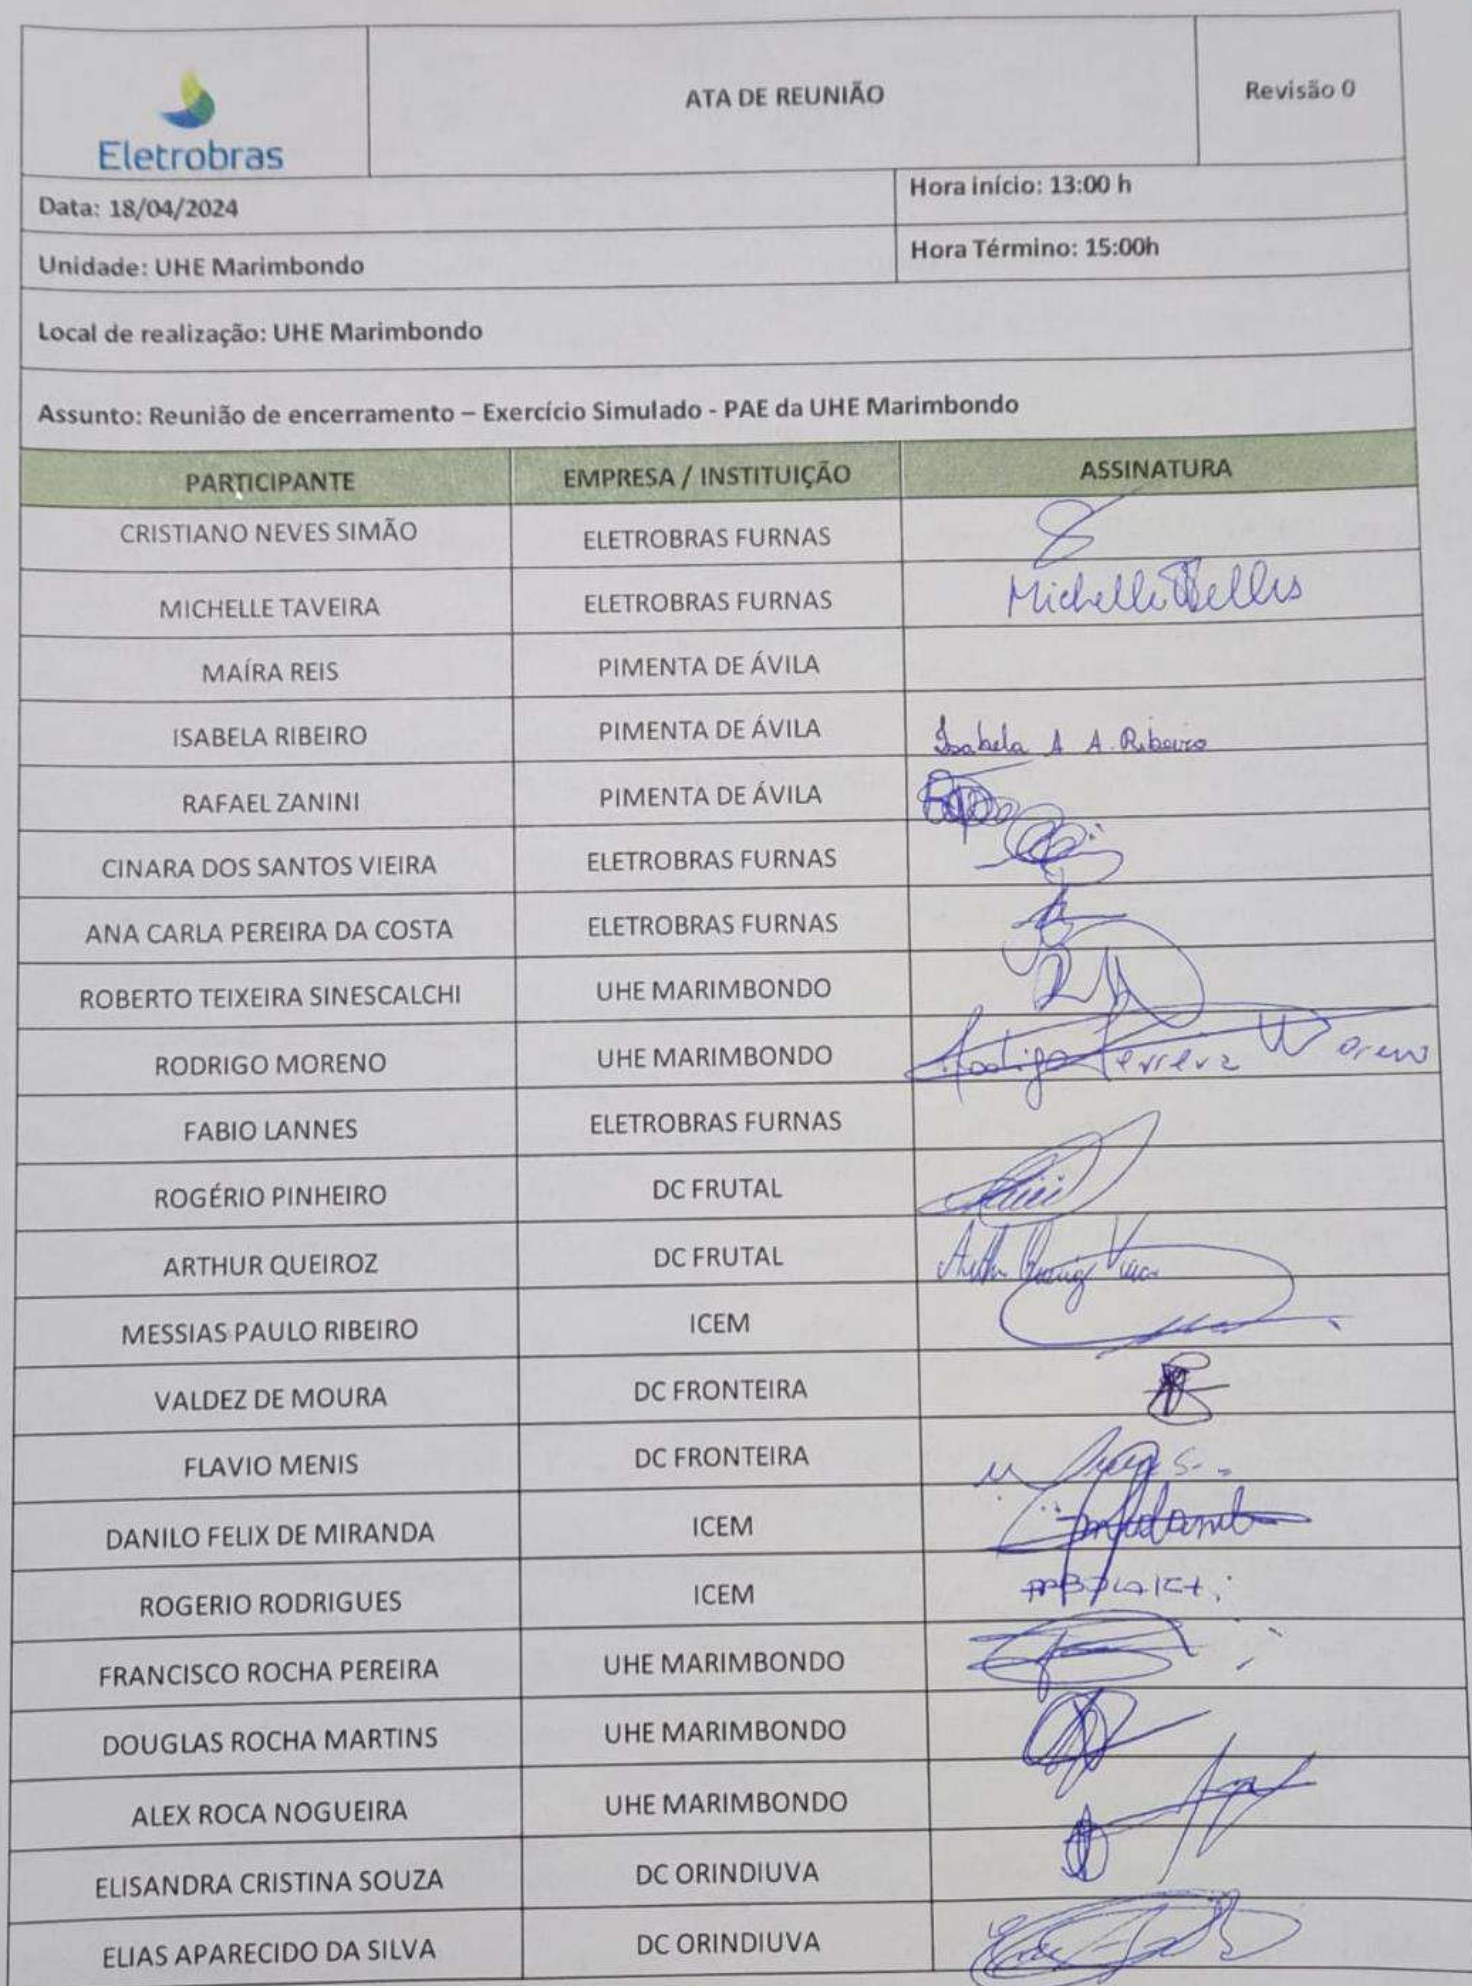 Eletrobras
ATA DE REUNIÃO
Revisão 0
Data: 18/04/2024
Hora início: 13:00 h
Unidade: UHE Marimbondo
Hora Término: 15:00h
Local de realização: UHE Marimbondo
Assunto: Reunião de encerramento – Exercício Simulado - PAE da UHE Marimbondo
PARTICIPANTE EMPRESA / INSTITUIÇÃO ASSINATURA
CRISTIANO NEVES SIMÃO ELETROBRAS FURNAS
MICHELLE TAVEIRA ELETROBRAS FURNAS Michelle Tellis
MAÍRA REIS PIMENTA DE ÁVILA
ISABELA RIBEIRO PIMENTA DE ÁVILA Isabela A A. Ribeiro
RAFAEL ZANINI PIMENTA DE ÁVILA
CINARA DOS SANTOS VIEIRA ELETROBRAS FURNAS
ANA CARLA PEREIRA DA COSTA ELETROBRAS FURNAS
ROBERTO TEIXEIRA SINESCALCHI UHE MARIMBONDO
RODRIGO MORENO UHE MARIMBONDO Rodrigo Ferreira Moreno
FABIO LANNES ELETROBRAS FURNAS
ROGÉRIO PINHEIRO DC FRUTAL
ARTHUR QUEIROZ DC FRUTAL Arthur Queiroz
MESSIAS PAULO RIBEIRO ICEM
VALDEZ DE MOURA DC FRONTEIRA
FLAVIO MENIS DC FRONTEIRA
DANILO FELIX DE MIRANDA ICEM
ROGERIO RODRIGUES ICEM
FRANCISCO ROCHA PEREIRA UHE MARIMBONDO
DOUGLAS ROCHA MARTINS UHE MARIMBONDO
ALEX ROCA NOGUEIRA UHE MARIMBONDO
ELISANDRA CRISTINA SOUZA DC ORINDIUVA
ELIAS APARECIDO DA SILVA DC ORINDIUVA